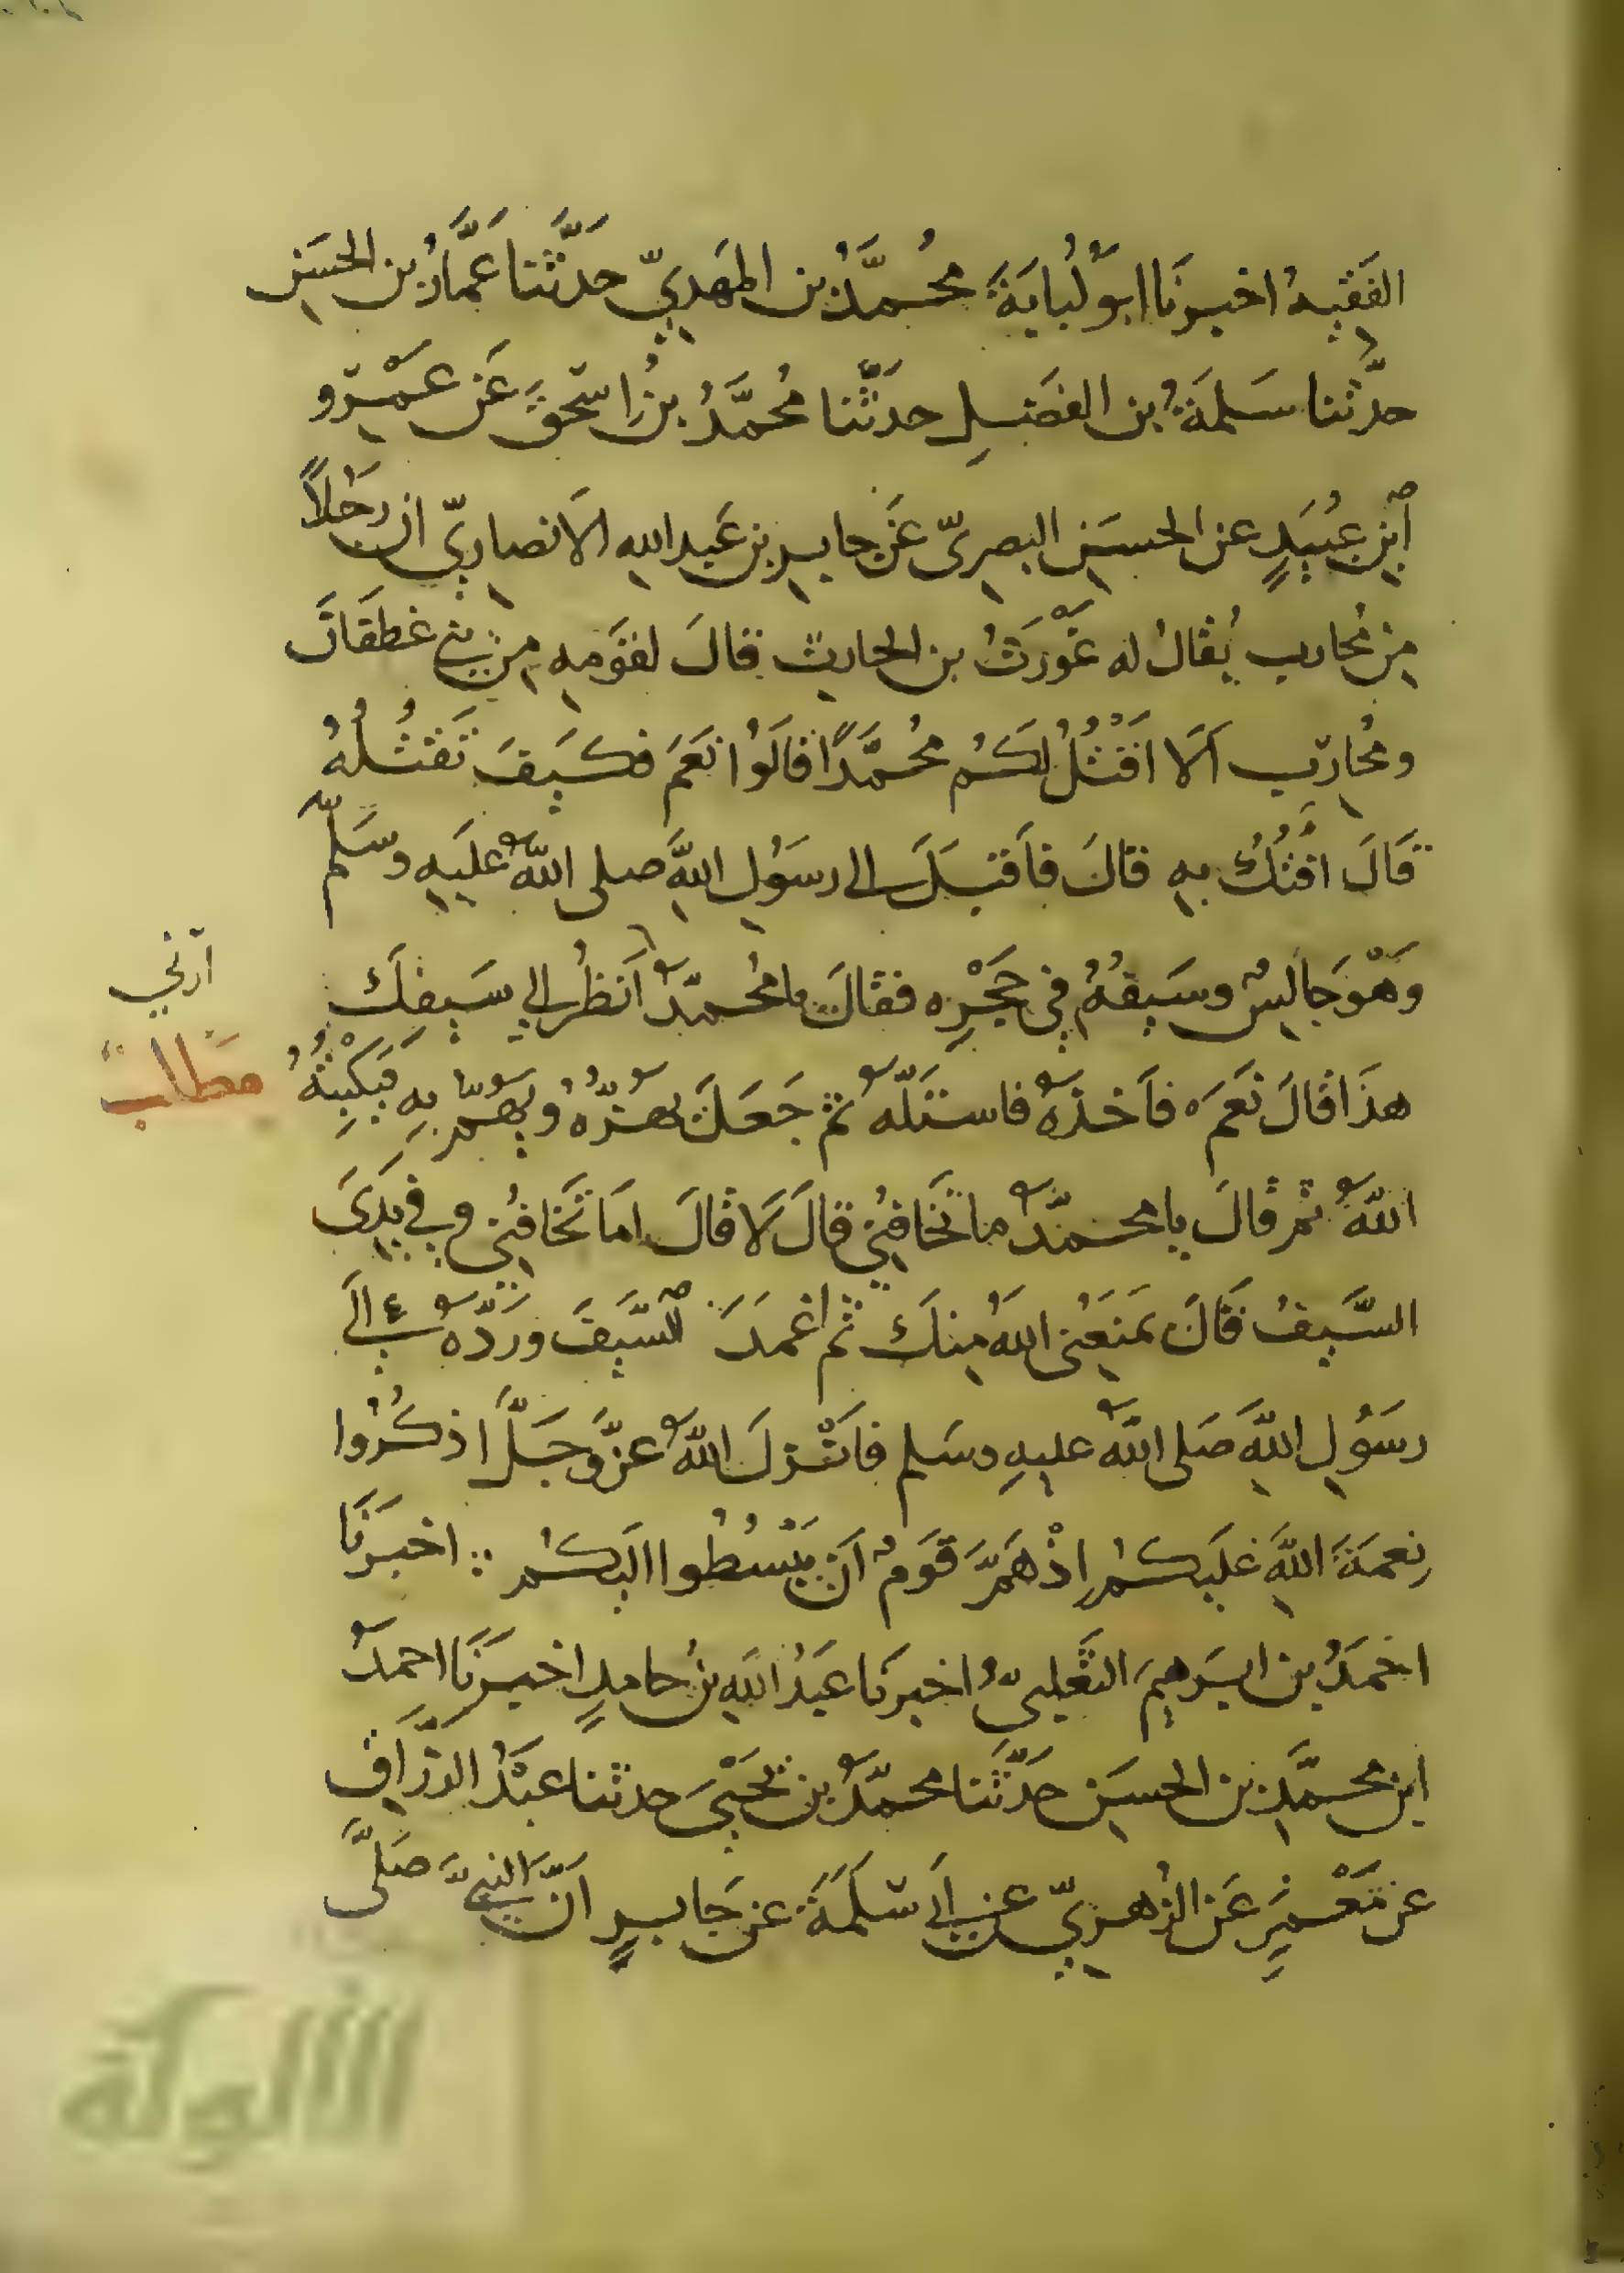 الفَقيهُ اخبرنَا ابو لُبابَةَ محُمَّدُ بن المَهديّ حَدَّثَنا عَمَّارُ بن الحَسَنِ
حدَّثنا سَلمَةُ بن الفَضلِ حدثَّنا مُحمَّدُ بنُ اسحقَ عَن عَمْرِو
ابنِ عُبَيدٍ عن الحسَنِ البصرىّ عَن جابرِ بن عَبدِ اللهِ الانصاريّ ان رَجُلاً
مِن مُحارب يُقالُ له غَوْرَثُ بن الحارِث قالَ لقَومِهِ مِن بني غطفَانَ
ومُحارِب اَلا اَقتُلُ لكُم محُمَّدًا قالَوُا نَعَم فكَيفَ تَقتُلُهُ
قَالَ افتُكُ بهِ قالَ فاَقبَلَ الى رسَوُلِ اللهِ صلى اللهُ علَيهِ وسَلّم
وَهْوَ جَالِسٌ وسَيفُهُ فِي حَجْرِه فقالَ يا محُمدُ اَنظُر الي سَيفِكَ
هذَا قالَ نَعَم فاَخذَهُ فاستَلَّهُ ثم جَعَلَ يهُزّهُ ويَهُمّ بِهِ فَيَكْبِتُهُ
اللهُ ثم قالَ يا محمدُ ما تَخَافُنِي قالَ لَا قالَ اما تَخَافُنِي وفي يَدِيَ
السَّيفُ قَالَ يَمنَعُنِى اللهُ مِنكَ ثم اغمَدَ السَّيفَ وردّهُ الَى
رسَوُلِ اللهِ صَلى اللهُ عليهِ وسَلم فاَنْزلَ اللهُ عزَّ وجَلَّ اذكُرُوا
نِعمَةَ اللهِ عَليَكُم اِذْ هَمَّ قَومٌ اَن يَبْسُطُوا اليَكُم ∴ اخبرَنَا
احمَدُ بن ابرَهِيمَ الثَّعلبىُّ اخبرَنا عَبدُ اللهِ بنُ حامِدٍ اخبرَنَا احمدُ
ابن محمَّدِ بن الحسَنِ حَدَّثَنا محمدُ بن يَحْيَى حدثنا عبَدُ الرَّزاقِ
عن مَعْمَرٍ عَن الزُهريّ عن اَبي سَلَمَةَ عن جَابرٍ انَّ النبيَّ صَلَّى
أرني
مَطلَبٌ
الألوكة